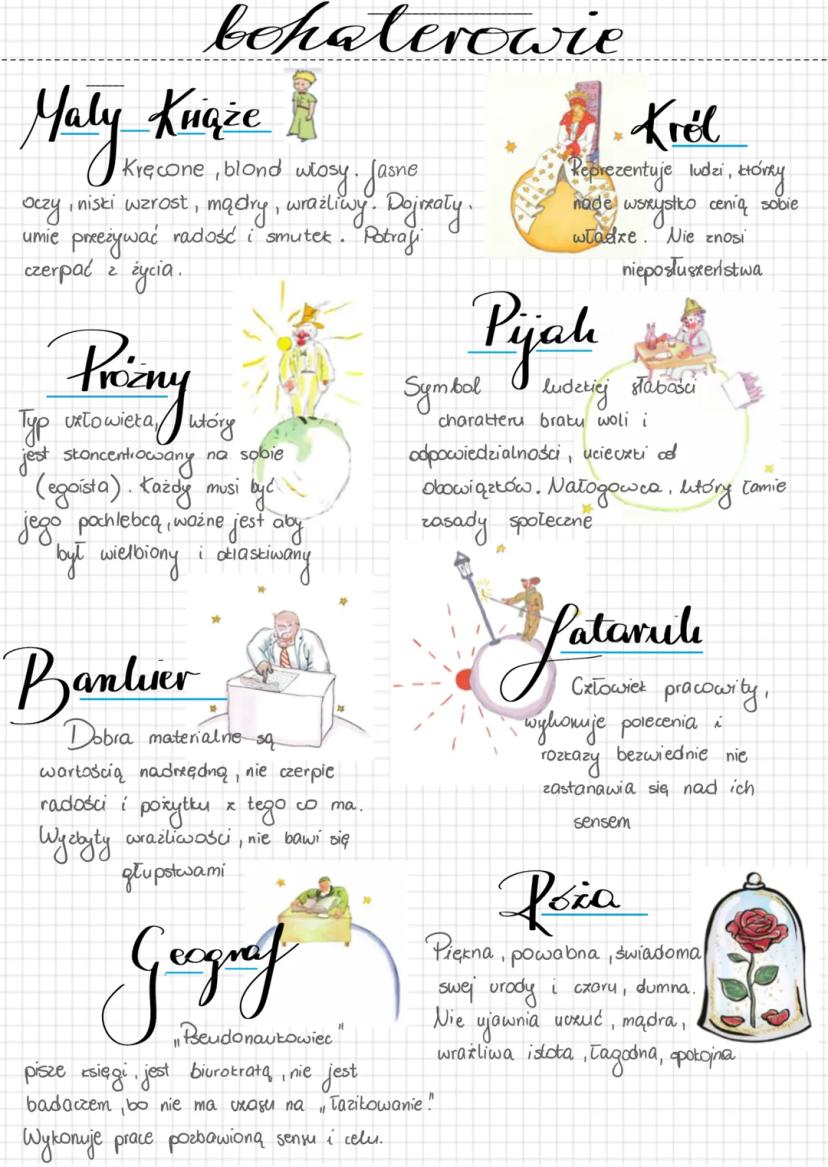 bohaterowie
Mały Książe
Kręcone, blond włosy. Jasne
oczy, niski wzrost, mądry, wrażliwy. Dojrzały.
umie przeżywać radość i smutek. Potrafi
czerpać z życia.
Król
Reprezentuje ludzi, którzy
nade wszystko cenią sobie
władze. Nie znosi
nieposłuszeństwa
Próżny
Typ człowieka, który
jest skoncentrowany na sobie
(egoista). Każdy musi być
jego pochlebcą, ważne jest aby
był wielbiony i oklaskiwany
Pijak
Symbol ludzkiej słabości
charakteru braku woli i
odpowiedzialności, ucieczki od
obowiązków. Nałogowca, który łamie
zasady społeczne
Bankier
Dobra materialne są
wartością nadrzędną, nie czerpie
radości i pożytku z tego co ma.
Wyzbyty wrażliwości, nie bawi się
głupstwami
Latarnik
Człowiek pracowity,
wykonuje polecenia i
rozkazy bezwiednie nie
zastanawia się nad ich
sensem
Geograf
„Pseudonaukowiec"
pisze księgi, jest biurokratą, nie jest
badaczem, bo nie ma czasu na „łazikowanie".
Wykonuje prace pozbawioną sensu i celu.
Róża
Piękna, powabna, świadoma
swej urody i czaru, dumna.
Nie ujawnia uczuć, mądra,
wrażliwa istota, łagodna, spokojna